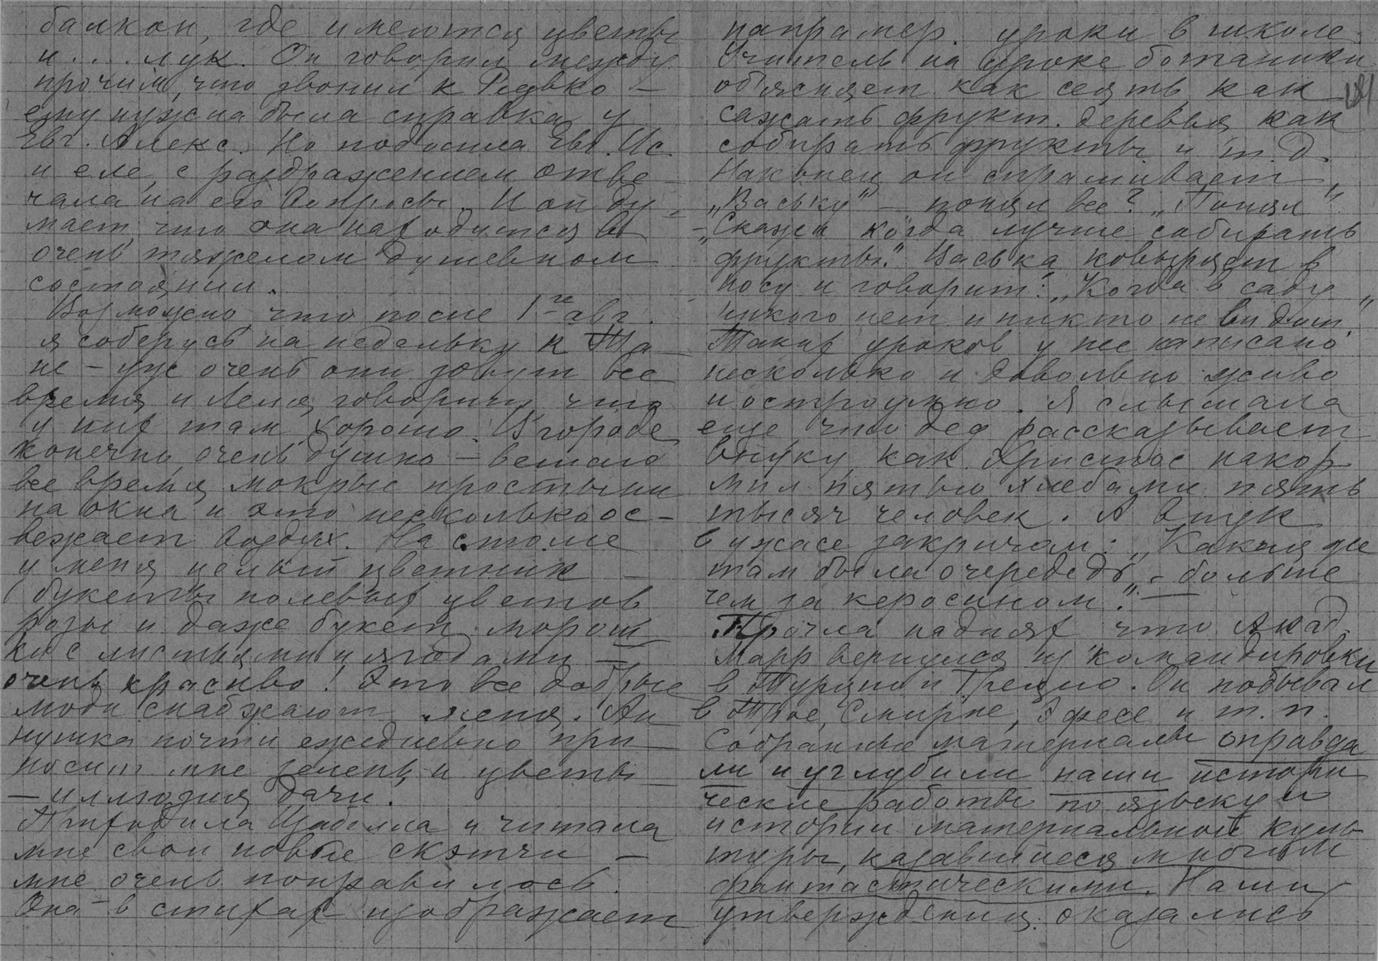 балкон, где имеются цветы
и . . . . лук. Он говорил между
прочим, что звонил к Редько —
ему нужна была справка у
Евг. Алекс. Но подошла Евг. Ис.
и еле, с раздражением отве-
чала на его вопросы. И он ду-
мает, что она находится в
очень тяжелом душевном
состоянии.
Возможно что после 1го авг.
я соберусь на недельку к Та-
не — уж очень они зовут все
время и Леля говорит, что
у них там хорошо. В городе
конечно, очень душно — вешаю
все время мокрые простыни
на окна и это несколько ос-
вежает воздух. На столе
у меня целый цветник —
букеты полевых цветов
розы и даже букет морош-
ки с листьями и ягодами —
очень красиво! Это все добрые
люди снабжают меня. Ан-
нушка почти ежедневно при-
носит мне зелень и цветы
— иллюзия дачи.
Приходила Изабелла и читала
мне свои новые скэтчи —
мне очень понравилось.
Она в стихах изображает
например. уроки в школе.
Учитель на уроке ботаники
объясняет как сеять как
сажать фрукт. деревья как
собирать фрукты и т.д.
Наконец он спрашивает
„Ваську“ — понял все? „Понял“.
— „Скажи когда лучше собирать
фрукты.“ Васька ковыряет в
носу и говорит: „Когда в саду
никого нет и никто не видит.“
Таких уроков у нее написано
несколько и довольно живо
и остроумно. Я слышала
еще что дед рассказывает
внуку, как Христос накор-
мил пятью хлебами пять
тысяч человек. А внук
в ужасе закричал: „Какая же
там была очередедь — больше
чем за керосином“. —
Прочла на днях что акад.
Марр вернулся из командировки
в Турцию и Грецию. Он побывал
в Трое, Смирне, Эфесе и т.п.
Собранные материалы оправда-
ли и углубили наши истори-
ческие работы по языку и
истории материальной куль-
туры, казавшиеся многим
фантастическими. Наши
утверждения оказались